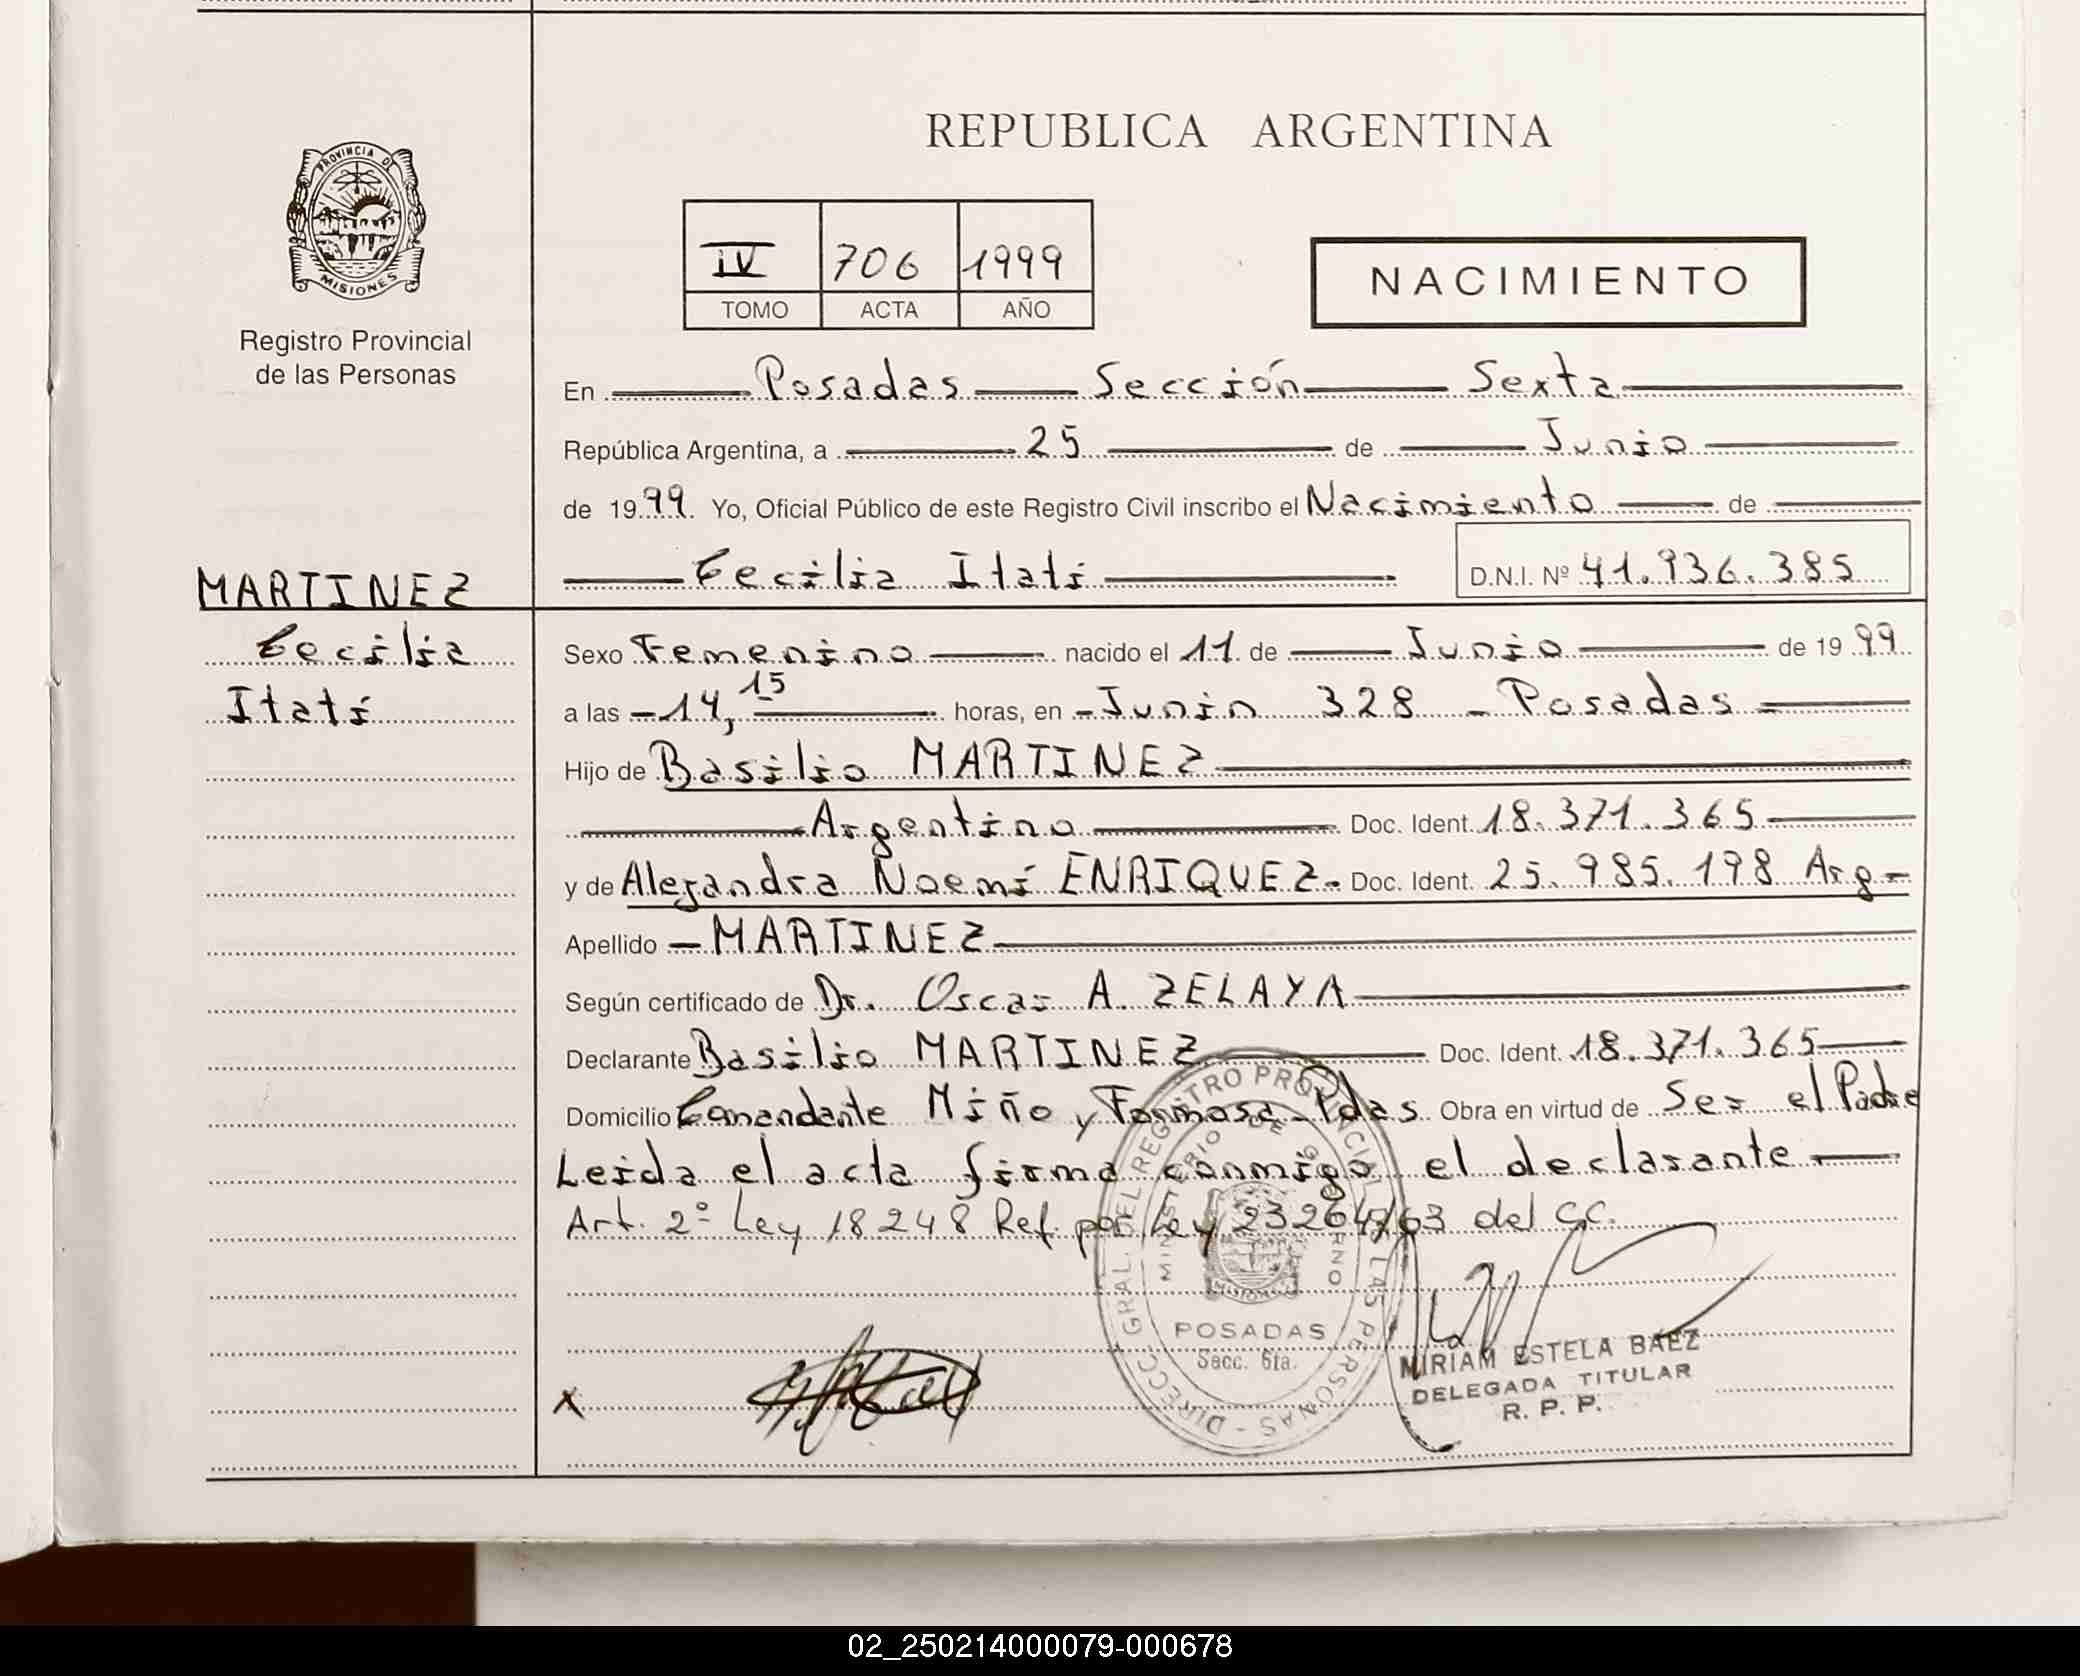 REPUBLICA ARGENTINA
PROVINCIA DE
MISIONES
Registro Provincial
de las Personas
IV 706 1999
TOMO ACTA AÑO
NACIMIENTO
En Posadas Sección Sexta
República Argentina, a 25 de Junio
de 1999. Yo, Oficial Público de este Registro Civil inscribo el Nacimiento de
Cecilia Itatí D.N.I. Nº 41.936.385
MARTINEZ
Cecilia
Itatí
Sexo Femenino nacido el 11 de Junio de 1999
a las -14,15 horas, en -Junín 328 - Posadas
Hijo de Basilio MARTINEZ
Argentino Doc. Ident. 18.371.365
y de Alejandra Noemí ENRIQUEZ- Doc. Ident. 25.985.198 Arg-
Apellido - MARTINEZ
Según certificado de Dr. Oscar A. ZELAYA
Declarante Basilio MARTINEZ Doc. Ident. 18.371.365
Domicilio Comandante Miño y Formosa-Pdas. Obra en virtud de Ser el Padre
Leida el acta firma conmigo el declarante
Art. 2º Ley 18248 Ref. por Ley 23264/63 del C.C.
DIRECC. GRAL. DEL REGISTRO PROVINCIAL DE LAS PERSONAS -
MINISTERIO DE GOBIERNO
MISIONES
POSADAS
Secc. 6ta.
MIRIAM ESTELA BAEZ
DELEGADA TITULAR
R. P. P.
x
02_250214000079-000678